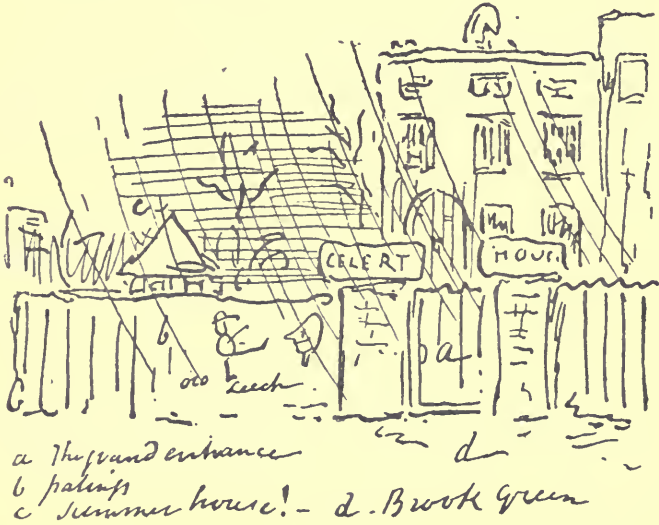 c
CELERT
HOUS.
b
a
Leech
d
a The grand entrance
b palings
c summer house! - d. Brook Green